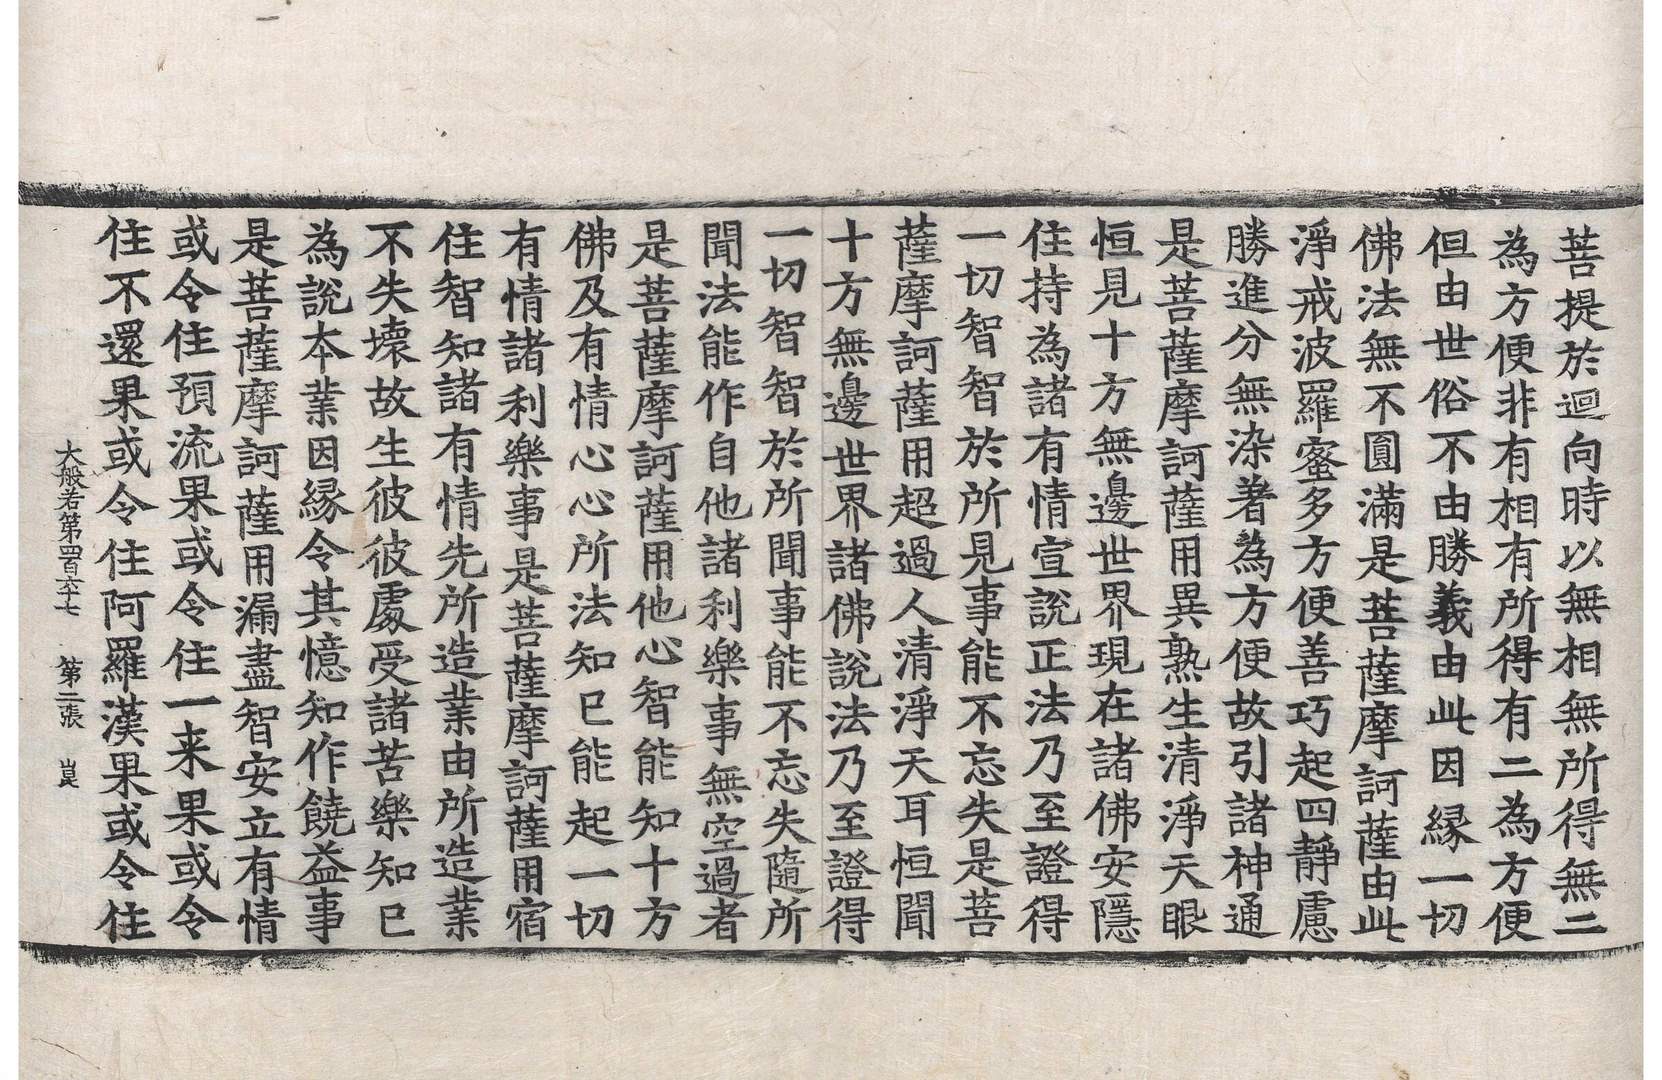 菩提於迴向時以無相無所得無二
為方便非有相有所得有二為方便
但由世俗不由勝義由此因縁一切
佛法無不圓滿是菩薩摩訶薩由此
淨戒波羅蜜多方便善巧起四靜慮
勝進分無染著為方便故引諸神通
是菩薩摩訶薩用異熟生清淨天眼
恒見十方無邊世界現在諸佛安隱
住持為諸有情宣說正法乃至證得
一切智智於所見事能不忘失是菩
薩摩訶薩用超過人清淨天耳恒聞
十方無邊世界諸佛說法乃至證得
一切智智於所聞事能不忘失隨所
聞法能作自他諸利樂事無空過者
是菩薩摩訶薩用他心智能知十方
佛及有情心心所法知已能起一切
有情諸利樂事是菩薩摩訶薩用宿
住智知諸有情先所造業由所造業
不失壞故生彼彼處受諸苦樂知已
為說本業因縁令其憶知作饒益事
是菩薩摩訶薩用漏盡智安立有情
或令住預流果或令住一来果或令
住不還果或令住阿羅漢果或令住
大般若第四百六十七 第二張 崑